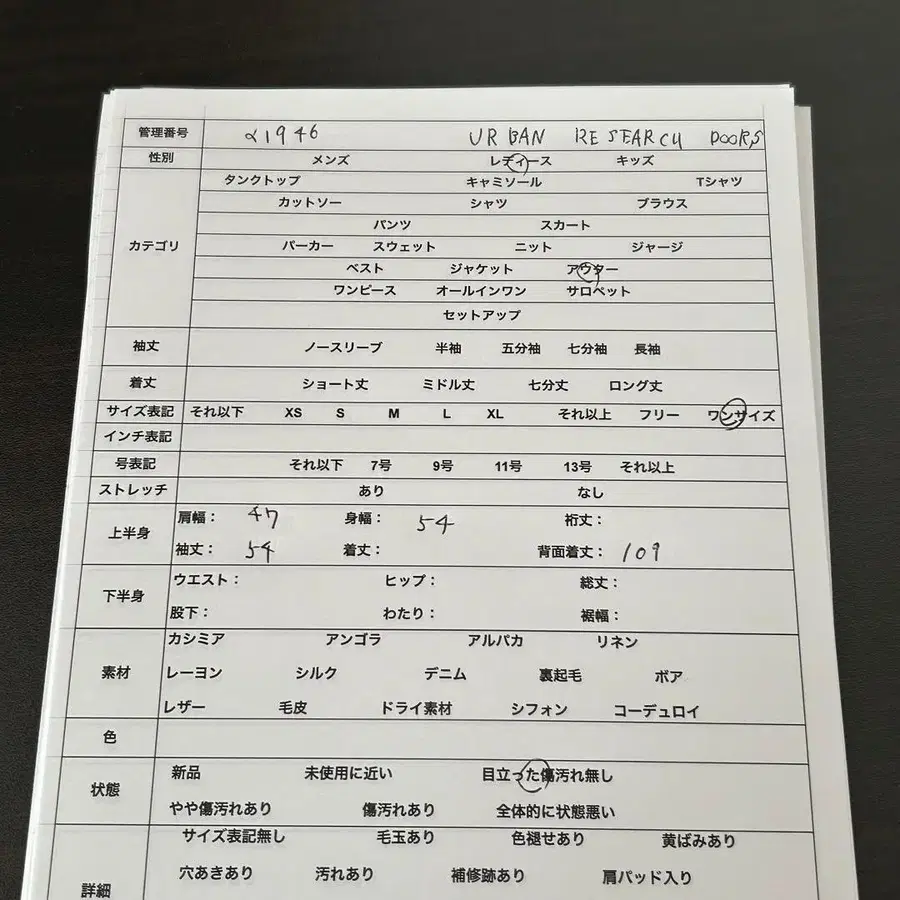 管理番号 α1946 URBAN RESEARCH DOORS
性別 メンズ レディース キッズ
カテゴリ タンクトップ キャミソール Tシャツ
カットソー シャツ ブラウス
パンツ スカート
パーカー スウェット ニット ジャージ
ベスト ジャケット アウター
ワンピース オールインワン サロペット
セットアップ
袖丈 ノースリーブ 半袖 五分袖 七分袖 長袖
着丈 ショート丈 ミドル丈 七分丈 ロング丈
サイズ表記 それ以下 XS S M L XL それ以上 フリー ワンサイズ
インチ表記
号表記 それ以下 7号 9号 11号 13号 それ以上
ストレッチ あり なし
上半身 肩幅： 47 身幅： 54 裄丈：
袖丈： 54 着丈： 背面着丈： 109
下半身 ウエスト： ヒップ： 総丈：
股下： わたり： 裾幅：
素材 カシミア アンゴラ アルパカ リネン
レーヨン シルク デニム 裏起毛 ボア
レザー 毛皮 ドライ素材 シフォン コーデュロイ
色
状態 新品 未使用に近い 目立った傷汚れ無し
やや傷汚れあり 傷汚れあり 全体的に状態悪い
詳細 サイズ表記無し 毛玉あり 色褪せあり 黄ばみあり
穴あきあり 汚れあり 補修跡あり 肩パッド入り